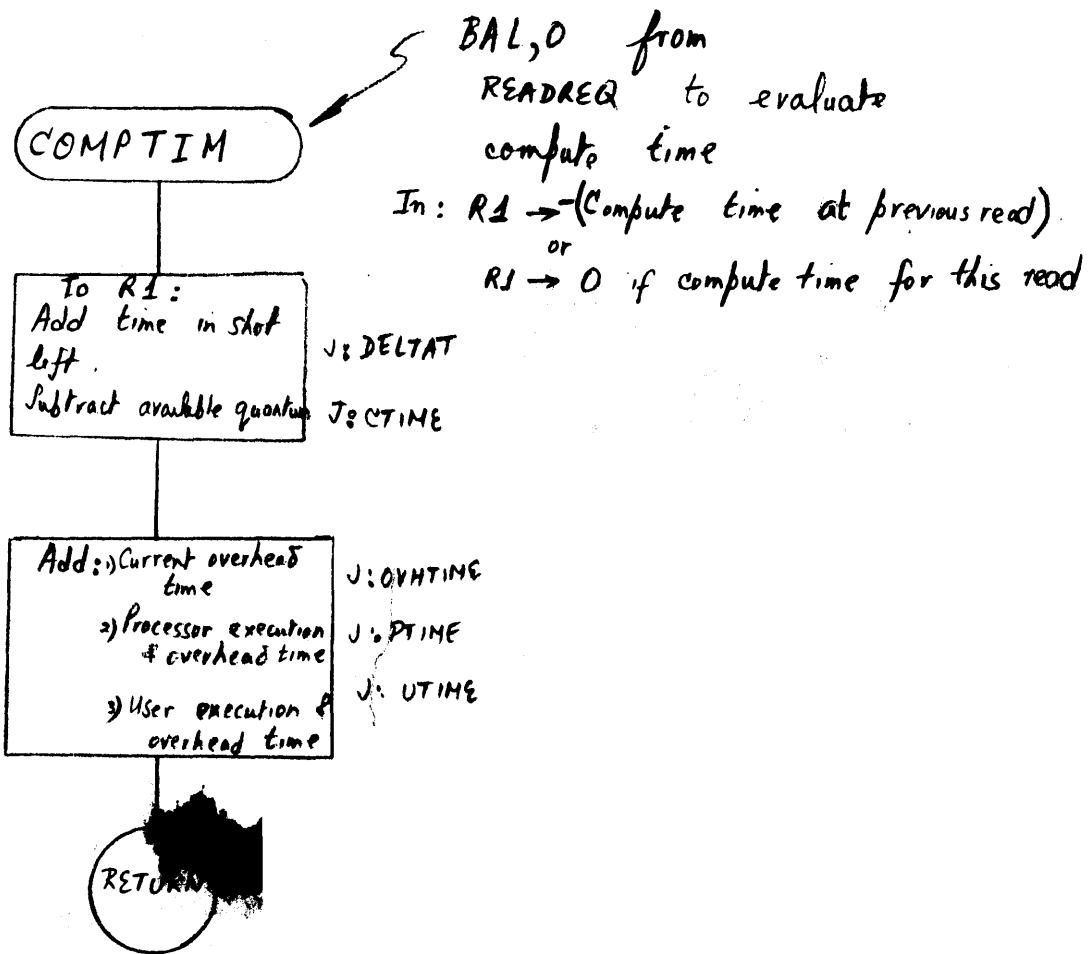 BAL,0 from
READREQ to evaluate
compute time
In: R1 → -(Compute time at previous read).
or
R1 → 0 if compute time for this read
COMPTIM
To R1:
Add time in shot
left.
Subtract available quantum
J: DELTAT
J: CTIME
Add: 1) Current overhead
time
2) Processor execution
& overhead time
3) User execution &
overhead time
J: OVHTIME
J: PTIME
J: UTIME
RETURN